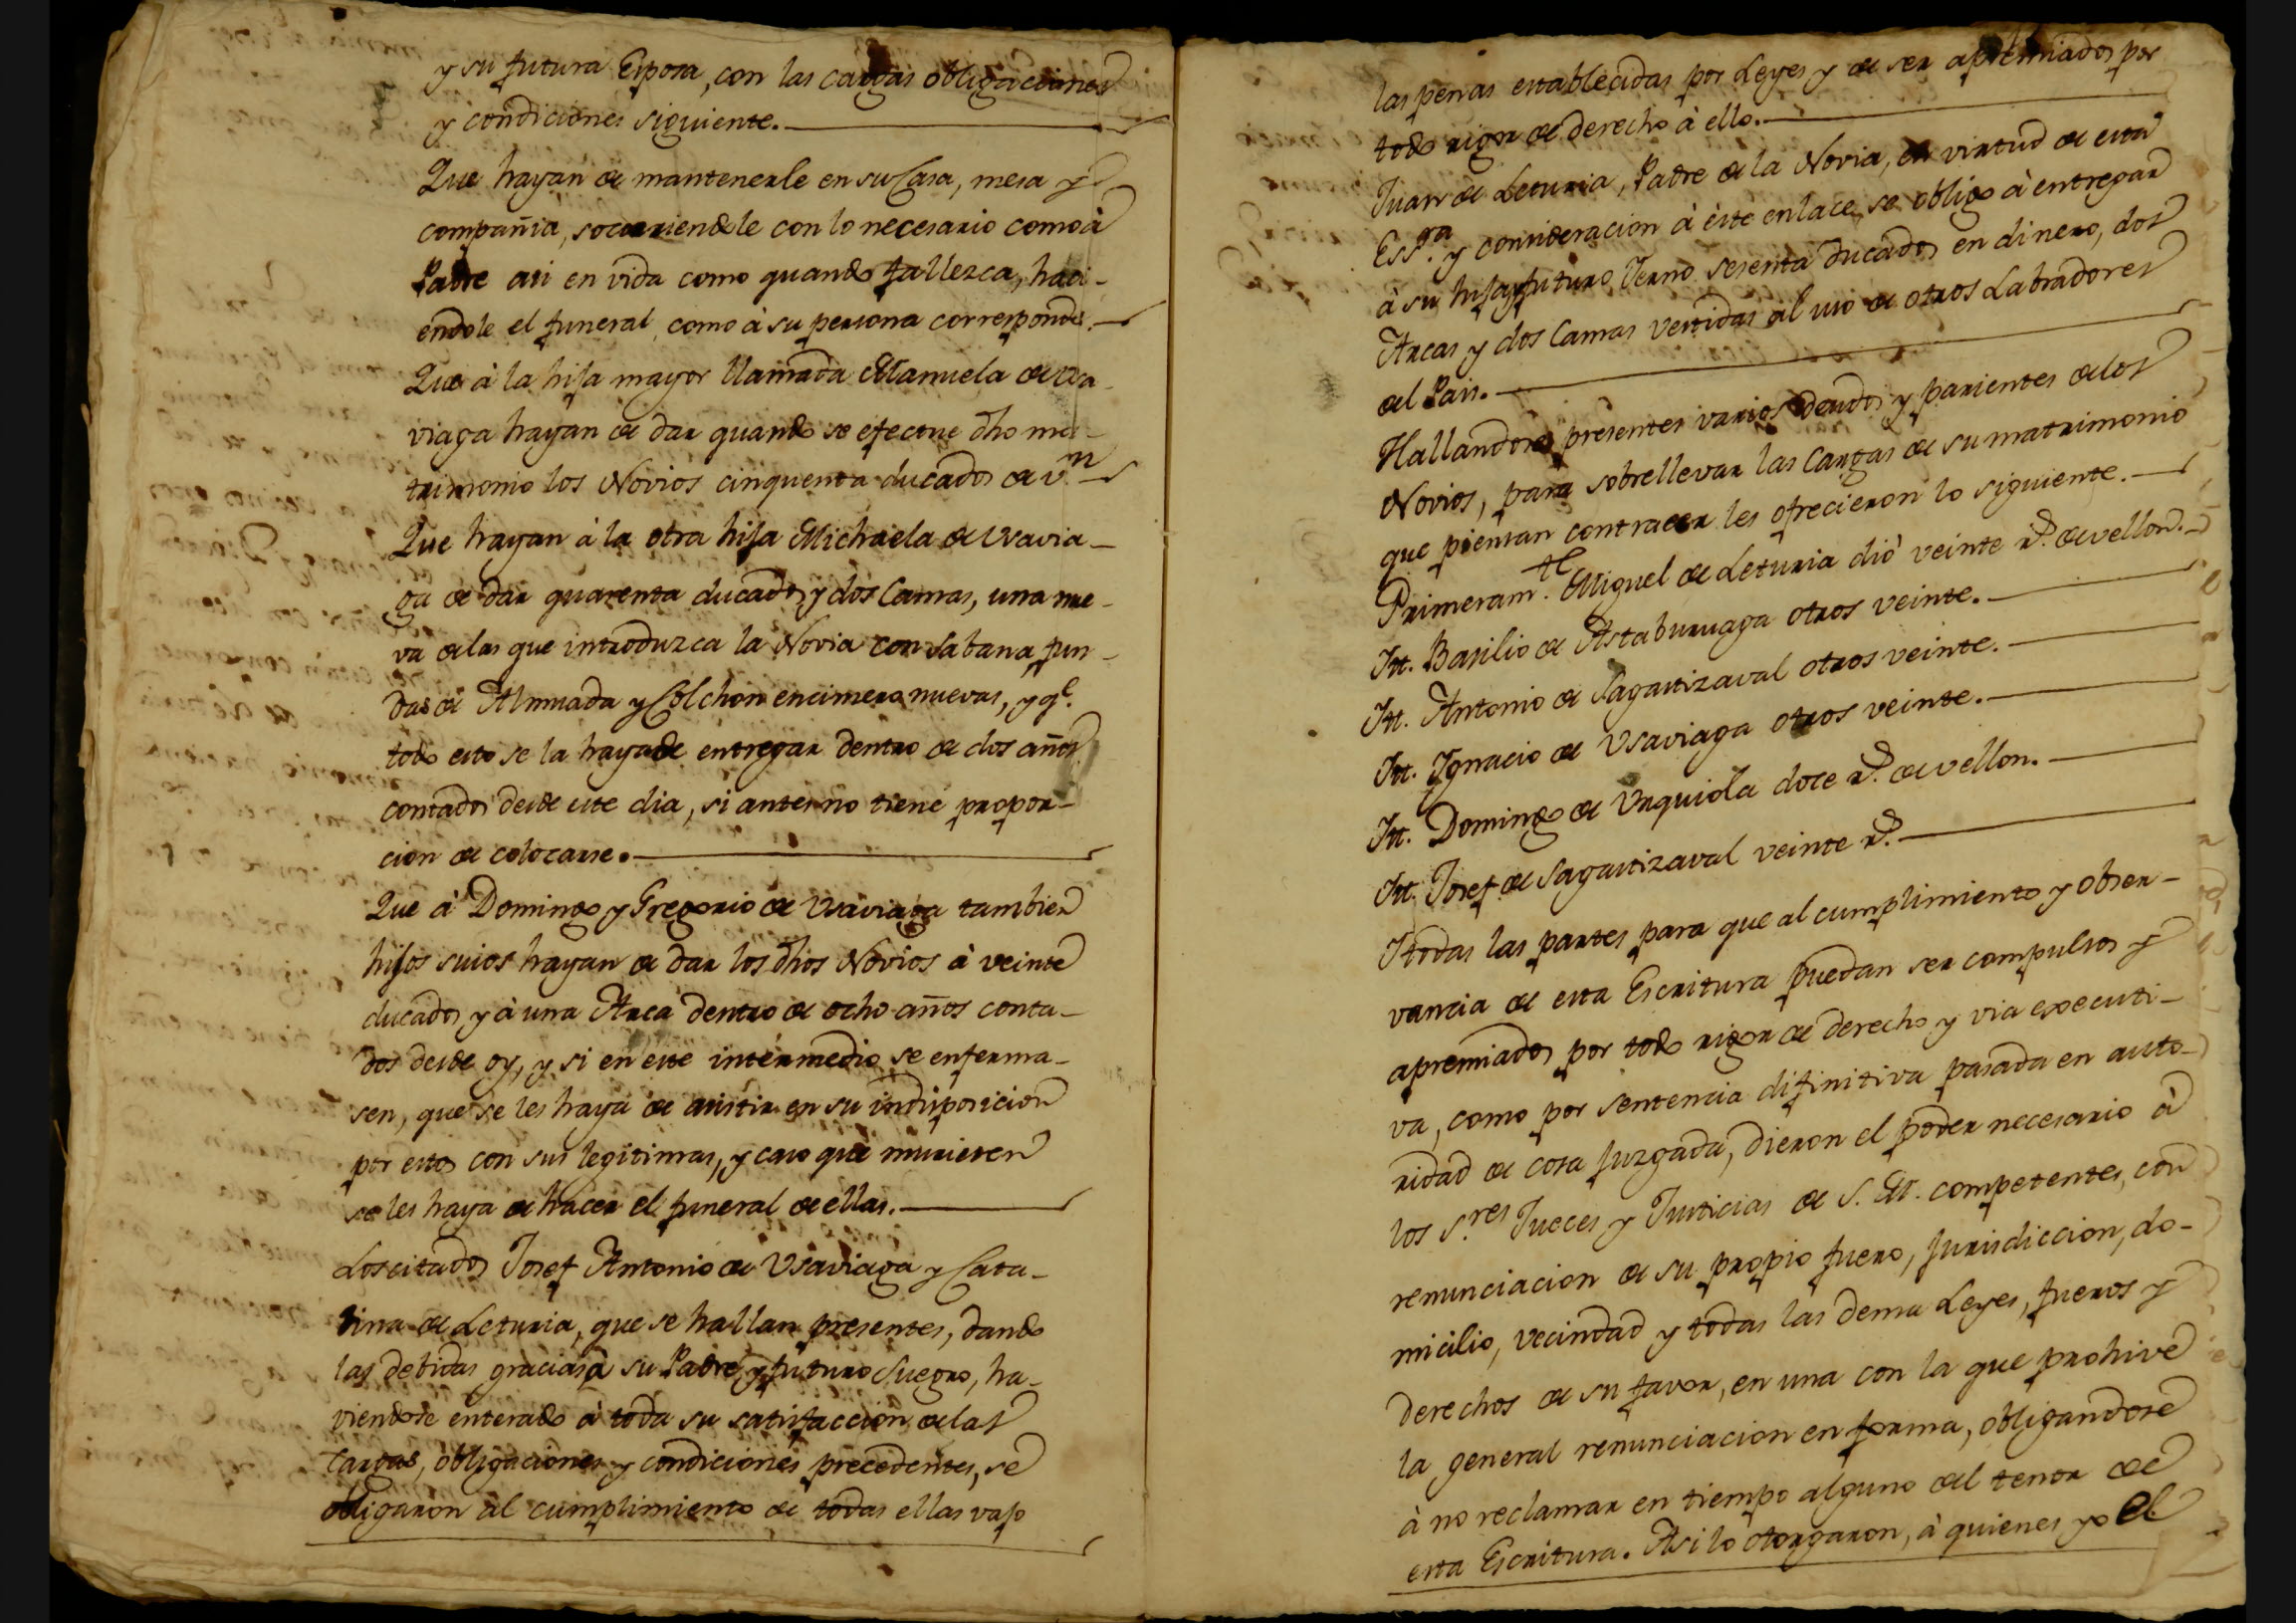 y su futura Esposa, con las cargas obligaciones
y condiciones siguiente.
Que hayan de mantenerle en su Casa, mesa y
compañia, socorriendole con lo necesario como à
Padre asi en vida como quando fallezca, haci-
endole el funeral como à su persona corresponde.
Que à la hija mayor llamada Manuela de Usa-
viaga hayan de dar quando se efectue dho ma-
trimonio los Novios cinquenta ducados de v.n
Que hayan à la otra hija Michaela de Usavia-
ga de dar quarenta ducados y dos Camas, una nue-
va de las que introduzca la Novia con Sabana fun-
das de Almuada y Colchon encimera nuevas, y q.e
todo esto se la haya de entregar dentro de dos años
contados desde este dia, si antes no tiene propor-
cion de colocarse.
Que à Domingo y Gregorio de Usaviaga tambien
hijos suios hayan de dar los dhos Novios à veinte
ducados y à una Arca dentro de ocho años conta-
dos desde oy, y si en este intermedio se enferma-
sen, que se les haya de asistir en su indisposicion
por estos con sus legitimas, y caso que muriesen
se les haya de hacer el funeral de ellas.
Los citados Josef Antonio de Usaviaga y Cata-
lina de Leturia, que se hallan presentes, dando
las debidas gracias à su Padre y futuro Suegro, ha-
viendose enterado à toda su satisfaccion de las
cargas, obligaciones y condiciones precedentes, se
obligaron al cumplimiento de todas ellas vajo
las penas establecidas por Leyes y de ser apremiados por
todo rigor de derecho à ello.
Juan de Leturia, Padre de la Novia, en virtud de esta
Ess.ra y consideracion à èste enlace se obligo à entregar
à su hija y futuro Yerno sesenta ducados en dinero, dos
Arcas y dos Camas vestidas al uso de otros Labradores
del Pais.
Hallandose presentes varios deudos y parientes de los
Novios, para sobrellevar las Cargas de su matrimonio
que piensan contraer les ofrecieron lo siguiente.
Primeram.te Miguel de Leturia diò veinte r.s de vellon.
Itt. Basilio de Astaburuaga otros veinte.
Itt. Antonio de Sagastizaval otros veinte.
Itt. Ygnacio de Usaviaga otros veinte.
Itt. Domingo de Urquiola doce r.s de vellon.
Itt. Josef de Sagastizaval veinte r.s
Y todas las partes para que al cumplimiento y obser-
vancia de esta Escritura puedan ser compulsos y
apremiados por todo rigor de derecho y via executi-
va, como por sentencia difinitiva pasada en auto-
ridad de cosa juzgada, dieron el poder necesario à
los S.res Jueces y Justicias de S. M. competentes, con
renunciacion de su propio fuero, jurisdiccion, do-
micilio, vecindad y todas las dema Leyes, fueros y
derechos de su favor, en una con la que prohive
la general renunciacion en forma, obligandose
à no reclamar en tiempo alguno del tenor de
esta Escritura. Asi lo otorgaron, à quienes yo el